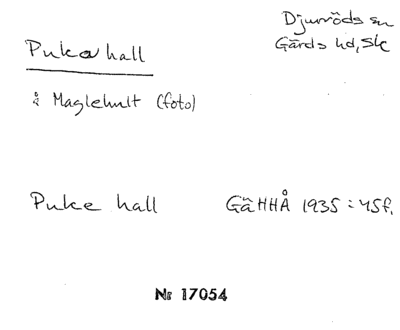 Djurröds sn
Gärds hd, Sk
Pukahall
å Maglehult (foto)
Puke hall GäHHÅ 1935:45f.
Nr 17054